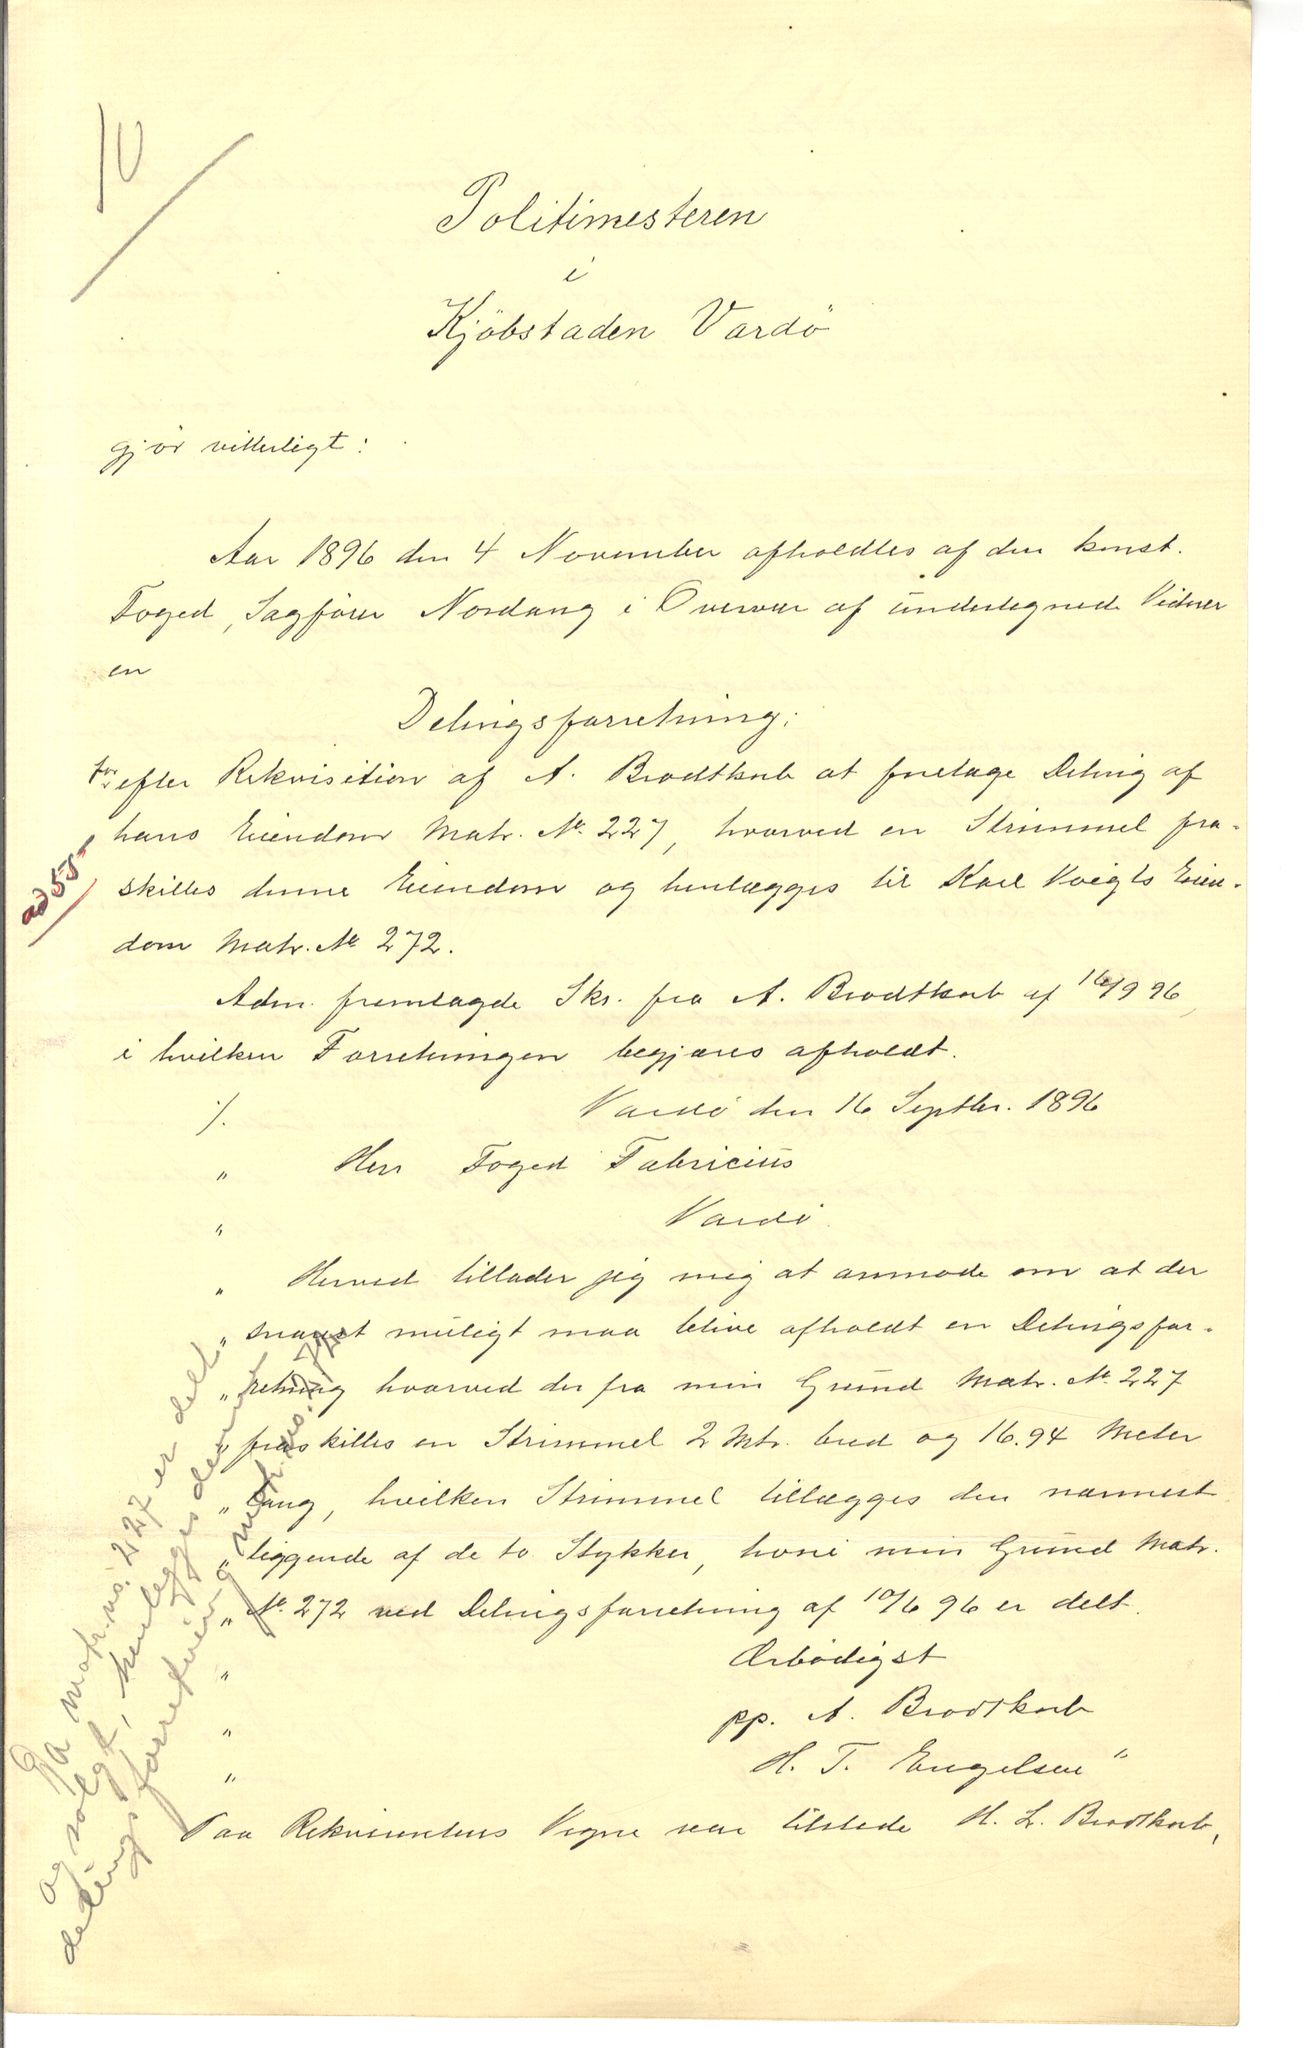 10
Politimesteren
i
Kjöbstaden Vardö
gjör vitterligt:
Aar 1896 den 4 November afholdtes af den konst.
Foged, Sagförer Nordang i Overvær af undertegnede Vidner
en
Delingsforretning:
for efter Rekvisition af A. Brodtkorb at foretage Deling af
hans Eiendom Matr. No. 227, hvorved en Strimmel fra-
skilles denne Eiendom og henlægges til Karl Voigts Eien-
dom Matr. No 272.
ad 55-
Adm. fremlagde Skr. fra A. Brodtkorb af 16/9 96,
i hvilken Forretningen begjæres afholdt.
./. Vardö den 16 Septbr. 1896
" Herr Foged Fabricius
" Vardö.
" Herved tillader jeg mig at anmode om at der
" snarest muligt maa blive afholdt en Delingsfor-
" retning hvorved der fra min Grund Matr. No. 227
" fraskilles en Strimmel 2 Mtr. bred og 16.94 Meter
" lang, hvilken Strimmel tillægges den nærmest
" liggende af de to Stykker, hvori min Grund Matr.
" No. 272 ved Delingsforretning af 10/6 96 er delt.
" Ærbödigst
" pp. A. Brodtkorb
" H. T. Engelsen "
Paa Rekvirentens Vegne var tilstede H. L. Brodtkorb,
Da matr. no. 227 er delt
og solgt, henlegges denne
delingsforretning matr. no. 272